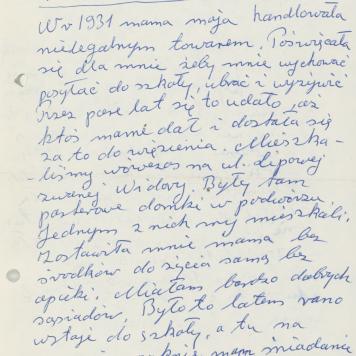 W r 1931 mama moja handlowała
nielegalnym towarem. Poświęcała
się dla mnie żeby mnie wychować
posyłać do szkoły, ubrać i wyżywić
Przez parę lat się to udało, aż
ktoś mamę dał i dostała się
za to do więzienia. Mieszka-
-liśmy wówczas na ul. Lipowej
zwanej Widovy. Były tam
parterowe domki w podwórzu.
Jednym z nich my mieszkali.
Zostawiła mnie mama bez
środków do życia samą bez
opieki. Miałam bardzo dobrych
sąsiadów. Było to latem rano
wstaję do szkoły, a tu na
mam śniadanie